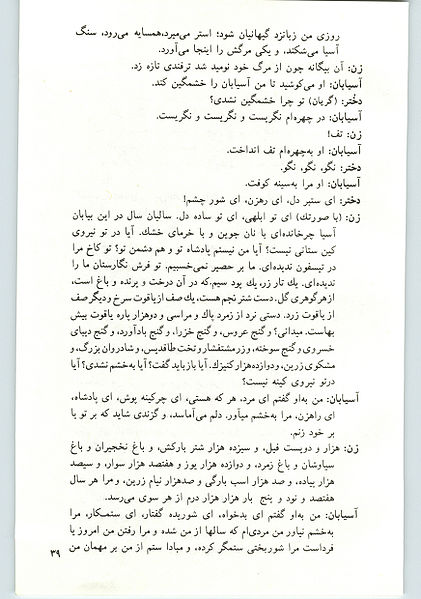 روزی من زبانزد گیهانیان شود؛ استر می‌میرد، همسایه می‌رود، سنگ
آسیا می‌شکند، و یکی مرگش را اینجا می‌آورد.
زن: آن بیگانه چون از مرگ خود نومید شد ترفندی تازه زد.
آسیابان: او می‌کوشید تا من آسیابان را خشمگین کند.
دختر: (گریان) تو چرا خشمگین نشدی؟
آسیابان: در چهره‌ام نگریست و نگریست و نگریست.
زن: تف!
آسیابان: او به‌چهره‌ام تف انداخت.
دختر: نگو، نگو، نگو.
آسیابان: او مرا به‌سینه کوفت.
دختر: ای ستبر دل، ای رهزن، ای شور چشم!
زن: (با صورتك) ای تو ابلهی، ای تو ساده دل. سالیان سال در این بیابان
آسیا چرخانده‌ای با نان جوین و با خرمای خشك. آیا در تو نیروی
کین ستانی نیست؟ آیا من نیستم پادشاه تو و هم دشمن تو؟ تو کاخ مرا
در تیسفون ندیده‌ای. ما بر حصیر نمی‌خسبیم. تو فرش نگارستان ما را
ندیده‌ای. یك تار زر، یك پود سیم. که در آن درخت و پرنده و باغ است،
از هر گوهری گل. دست شتر نجم هست، یك صف از یاقوت سرخ و دیگر صف
از یاقوت زرد. دستی نرد از زمرد پاك و مراسی و دوهزار پاره یاقوت بیش
بهاست. میدانی؟ و گنج عروس، و گنج خزرا، و گنج بادآورد، و گنج دیبای
خسروی و گنج سوخته، و زر مشتفشار و تخت طاقدیس، و شادروان بزرگ، و
مشکوی زرین، و دوازده‌هزار کنیزك. آیا باز باید گفت؟ آیا به‌خشم نشدی؟ آیا
در تو نیروی کینه نیست؟
آسیابان: من به‌او گفتم ای مرد، هر که هستی، ای چرکینه پوش، ای پادشاه،
ای راهزن، مرا به‌خشم میآور. دلم می‌آماسد، و گزندی شاید که بر تو یا
بر خود زنم.
زن: هزار و دویست فیل، و سیزده هزار شتر بارکش، و باغ نخجیران و باغ
سیاوشان و باغ زمرد، و دوازده هزار یوز و هفتصد هزار سوار، و سیصد
هزار پیاده، و صد هزار اسب بارگی و صدهزار نیام زرین، و مرا هر سال
هفتصد و نود و پنج بار هزار درم از هر سوی می‌رسد.
آسیابان: من به‌او گفتم ای بدخواه، ای شوریده گفتار، ای ستمکار، مرا
به‌خشم نیاور من مردی‌ام که سالها از من شده و مرا رفتن من امروز یا
فرداست مرا شوربختی ستمگر کرده، و مبادا ستم از من بر مهمان من
۳۹